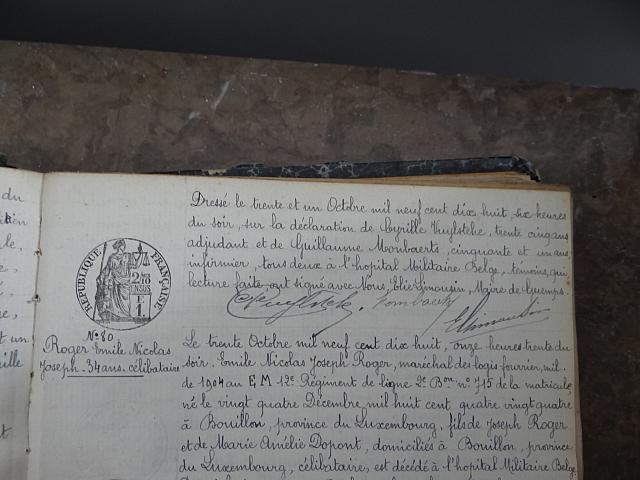 du
Dressé le trente et un Octobre mil neuf cent dix huit, six heures
du soir, sur la déclaration de Cyrille Vuylsteke, trente cinq ans
adjudant et de Guillaume Mombaerts, cinquante et un ans
infirmier, tous deux à l'hopital Militaire Belge, témoins, qui
lecture faite, ont signé avec Nous, Elie Limousin, Maire de Guemps.
CVuylsteke Mombaerts
ELimousin
RÉPUBLIQUE FRANÇAISE
2/10
EN SUS
F
1
No 80
Roger Emile Nicolas
Joseph. 34 ans. célibataire
Le trente Octobre mil neuf cent dix huit, onze heures trente du
soir. Emile Nicolas Joseph Roger, maréchal des logis fourrier, mil.
de 1904 au E M 12e Régiment de ligne 2e Bon no 715 de la matricule,
né le vingt quatre Décembre mil huit cent quatre vingt quatre
à Bouillon, province du Luxembourg, fils de Joseph Roger
et de Marie Amélie Dopont, domiciliés à Bouillon, province
du Luxembourg, célibataire, est décédé à l'hopital Militaire Belge